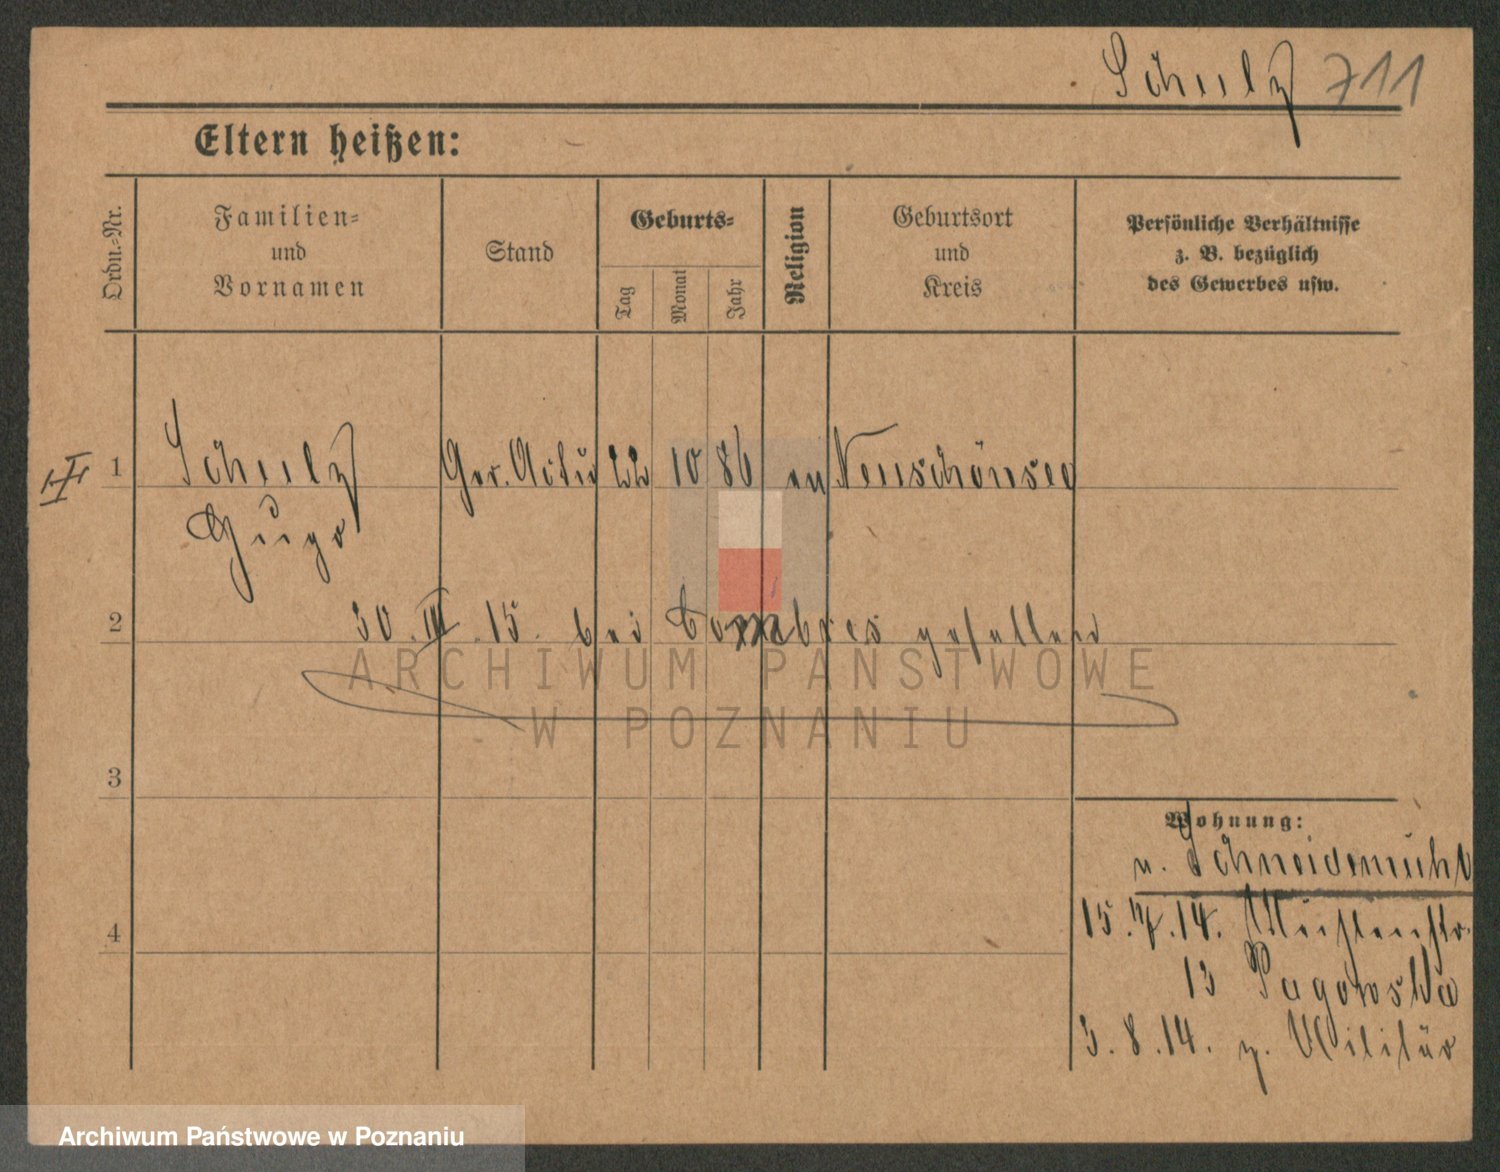 Schulz 711
Eltern heißen:
Ordn.-Nr.
Familien-
und
Vornamen
Stand
Geburts-
Tag
Monat
Jahr
Religion
Geburtsort
und
Kreis
Persönliche Verhältnisse
z. B. bezüglich
des Gewerbes usw.
1 Schulz Ger. Actu 22 10 86 ev Neuschönsee
Hugo
2 30. III. 15. bei Combres gefallen
ARCHIWUM PAŃSTWOWE
W POZNANIU
3
Wohnung:
n. Schneidemühl
4 15. 14.
13 Pagowska
3. 8. 14. z. Militär
Archiwum Państwowe w Poznaniu